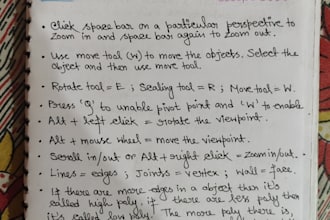 • Click space bar on a particular perspective to
zoom in and space bar again to zoom out.
• Use move tool (W) to move the objects. Select the
object and then use move tool.
• Rotate tool = E ; Scaling tool = R ; Move tool = W.
• Press 'Q' to unable pivot point and 'W' to enable
• Alt + left click = rotate the viewpoint.
• Alt + mouse wheel = move the viewpoint.
• Scroll in/out or Alt + right click = zoom in/out.
• Lines = edges ; Joints = vertex ; Wall = face.
• If there are more edges in a object then it's
called high poly, if there are less poly then
it's called low poly. The more poly there is,